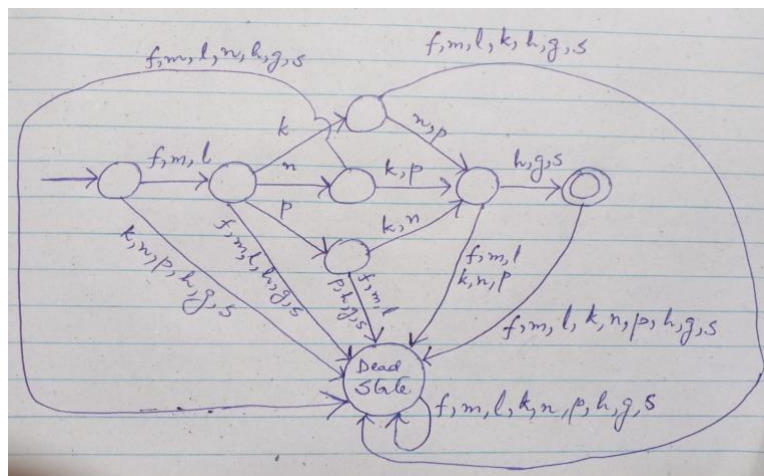 f,m,l,n,h,g,s
f,m,l,k,h,g,s
k
n,p
f,m,l
n
k,p
h,g,s
p
k,n
k,n,p,h,g,s
f,m,l,h,g,s
f,m,l
p,h,g,s
f,m,l
k,n,p
f,m,l,k,n,p,h,g,s
Dead
State
f,m,l,k,n,p,h,g,s